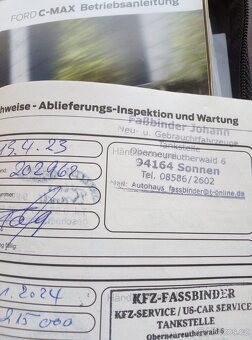 FORD C-MAX Betriebsanleitung
hweise - Ablieferungs-Inspektion und Wartung
Faßbinder Johann
Neu- u. Gebrauchtfahrzeuge
Tankstelle
Oberneureutherwald 6
94164 Sonnen
Tel. 08586/2602
Mail: Autohaus_fassbinder@t-online.de
13.4.23
202962
1.2024
215000
KFZ-FASSBINDER
KFZ-SERVICE / US-CAR SERVICE
TANKSTELLE
Oberneureutherwald 6